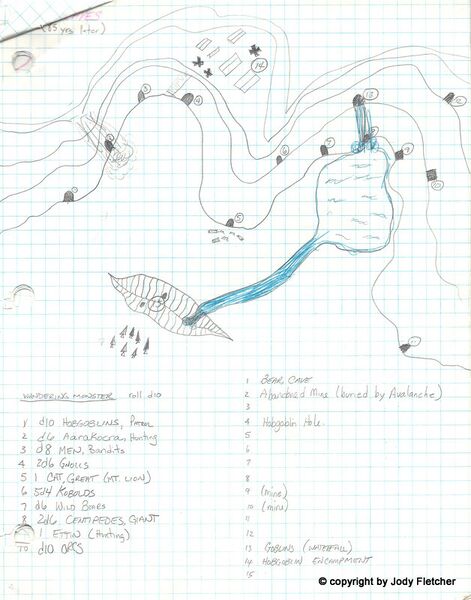 (85 yrs later)
14
13
WANDERING MONSTER roll d10
1 d10 HOBGOBLINS, PATROL
2 d6 Aarakocran, Hunting
3 d8 MEN, Bandits
4 2d6 Gnolls
5 1 CAT, GREAT (MT. LION)
6 5d4 KOBOLDS
7 d6 WILD BOARS
8 2d6 CENTIPEDES, GIANT
1 ETTIN (Hunting)
10 d10 ORCS
1 BEAR CAVE
2 Abandoned Mine (buried by Avalanche)
3
4 Hobgoblin Hole.
5
6
7
8
9 (mine)
10 (mine)
11
12
13 GOBLINS (WATERFALL)
14 HOBGOBLIN ENCAMPMENT
15
© copyright by Jody Fletcher